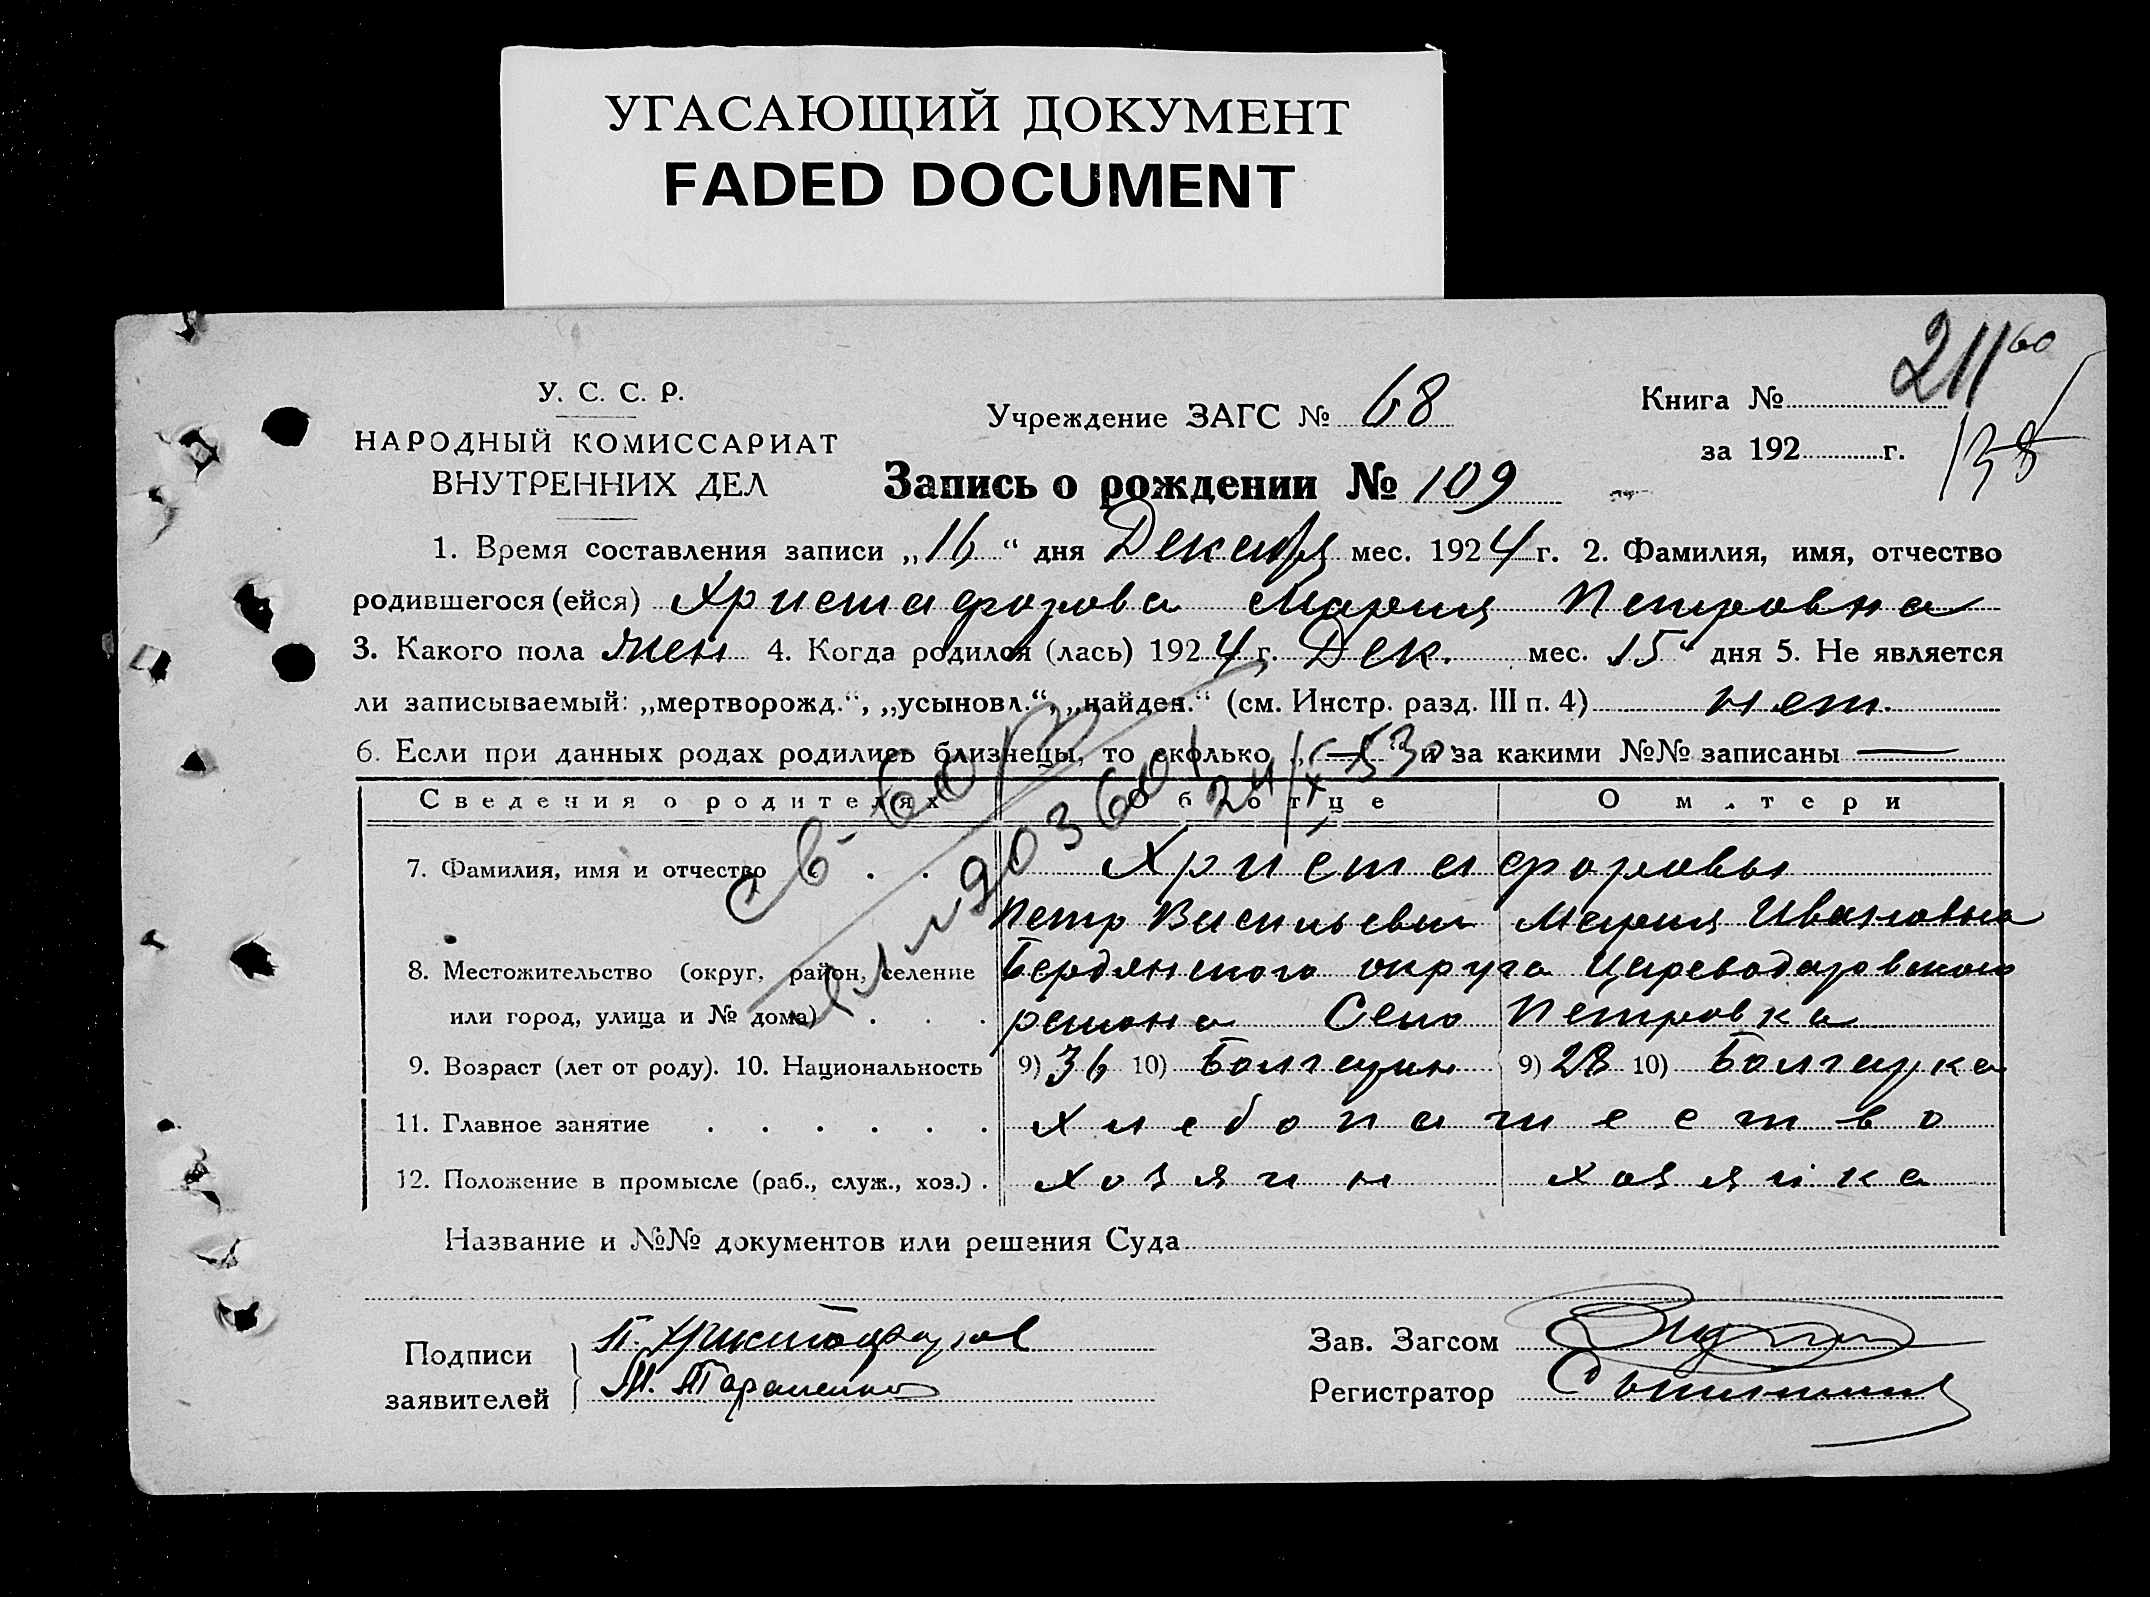 УГАСАЮЩИЙ ДОКУМЕНТ
FADED DOCUMENT
211 60
У. С. С. Р.
НАРОДНЫЙ КОМИССАРИАТ
ВНУТРЕННИХ ДЕЛ
Учреждение ЗАГС № 68
Книга №
за 192 г.
135
Запись о рождении № 109
1. Время составления записи „16“ дня Декабря мес. 1924 г. 2. Фамилия, имя, отчество
родившегося (ейся) Христафорова Мария Петровна
3. Какого пола жен 4. Когда родился (лась) 1924 г. Дек. мес. 15 дня 5. Не является
ли записываемый: „мертворожд.“, „усыновл.“, „найден.“ (см. Инстр. разд. III п. 4) нет.
6. Если при данных родах родились близнецы, то сколько „—“ и за какими №№ записаны —
Сведения о родителях Об отце О матери
7. Фамилия, имя и отчество Христафоровы
Петр Васильевич Мария Ивановна
8. Местожительство (округ, район, селение Бердянского округа Цареводаровского
или город, улица и № дома) района Село Петровка
9. Возраст (лет от роду). 10. Национальность 9) 36 10) Болгарин 9) 28 10) Болгарка
11. Главное занятие Хлебопашество
12. Положение в промысле (раб., служ., хоз.) хозяин хозяйка
Название и №№ документов или решения Суда
Подписи заявителей П. Христофоров
Зав. Загсом
Регистратор